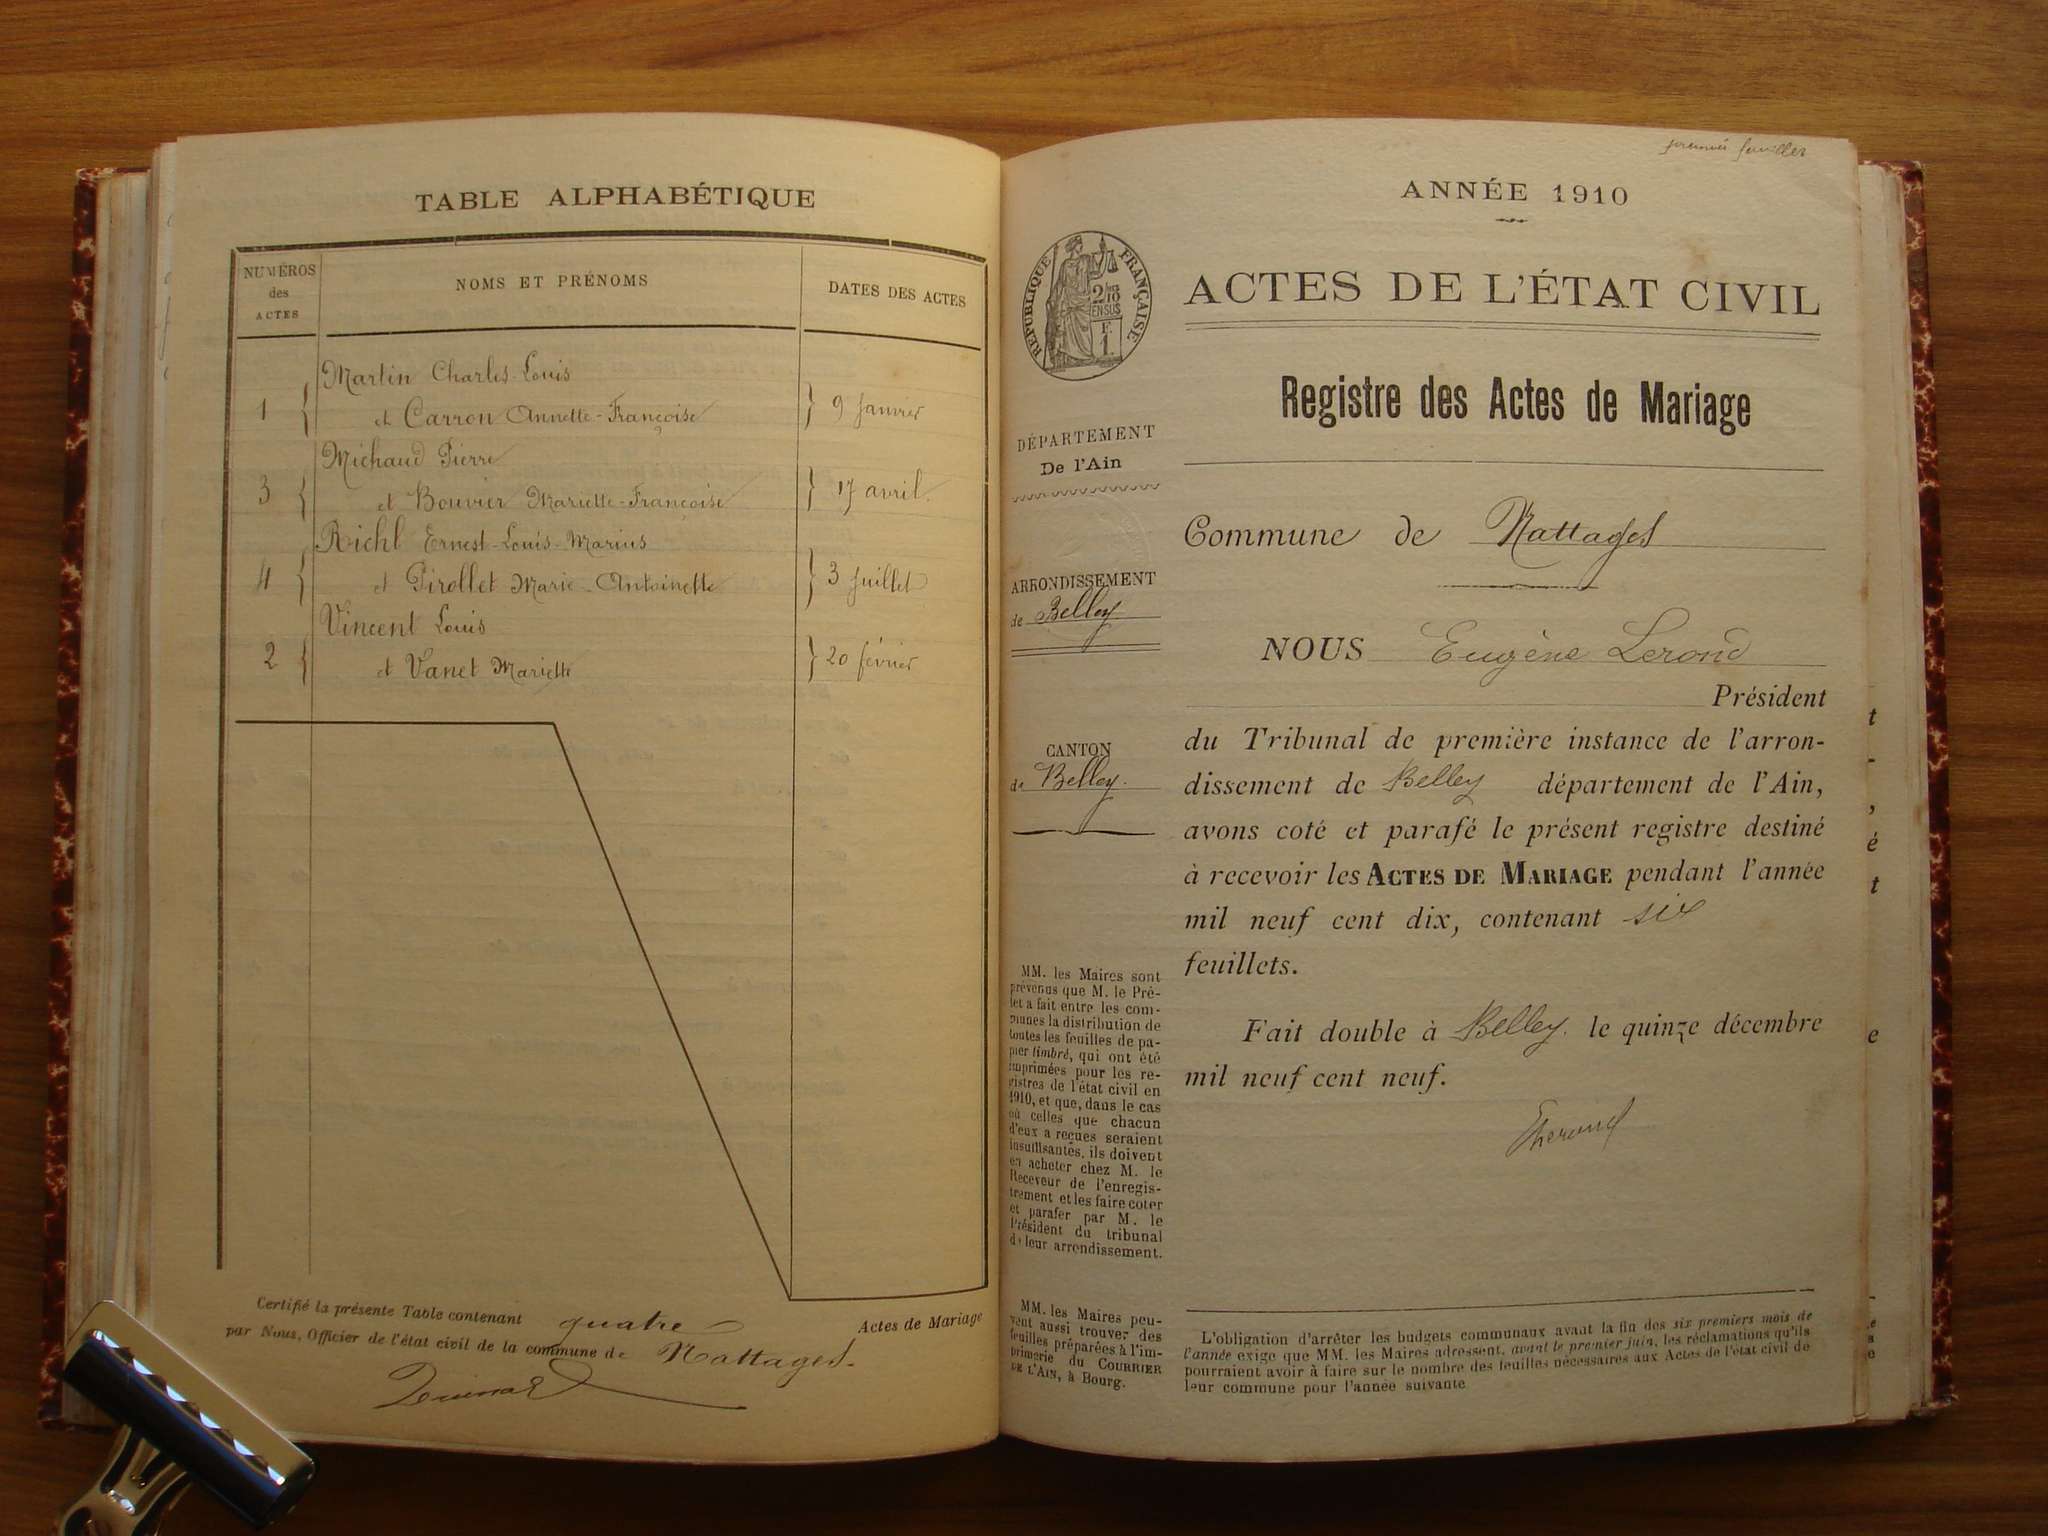 TABLE ALPHABÉTIQUE
NUMÉROS des ACTES
NOMS ET PRÉNOMS
DATES DES ACTES
Martin Charles-Louis
1 et Carron Annette-Françoise 9 Janvier
Michaud Pierre
3 et Bouvier Mariette-Françoise 17 avril.
Richl Ernest-Louis-Marius
4 et Pirollet Marie-Antoinette 3 Juillet
Vincent Louis
2 et Vanet Mariette 20 février
Certifié la présente Table contenant quatre Actes de Mariage
par Nous, Officier de l'état civil de la commune de Nattages.
premier feuillet
ANNÉE 1910
RÉPUBLIQUE FRANÇAISE
2/10
EN SUS
F.
1.
ACTES DE L'ÉTAT CIVIL
Registre des Actes de Mariage
DÉPARTEMENT
De l'Ain
ARRONDISSEMENT
de Belley.
CANTON
de Belley.
MM. les Maires sont
prévenus que M. le Pré-
fet a fait entre les com-
munes la distribution de
toutes les feuilles de pa-
pier timbré, qui ont été
imprimées pour les re-
gistres de l'état civil en
1910, et que, dans le cas
où celles que chacun
d'eux a reçues seraient
insuffisantes, ils doivent
en acheter chez M. le
Receveur de l'enregis-
trement et les faire coter
et parafer par M. le
Président du tribunal
de leur arrondissement.
MM. les Maires peu-
vent aussi trouver des
feuilles préparées à l'im-
primerie du COURRIER
DE L'AIN, à Bourg.
Commune de Nattages
NOUS Eugène Lerond
Président
du Tribunal de première instance de l'arron-
dissement de Belley département de l'Ain,
avons coté et parafé le présent registre destiné
à recevoir les ACTES DE MARIAGE pendant l'année
mil neuf cent dix, contenant six
feuillets.
Fait double à Belley. le quinze décembre
mil neuf cent neuf.
L'obligation d'arrêter les budgets communaux avant la fin des six premiers mois de
l'année exige que MM. les Maires adressent, avant le premier juin, les réclamations qu'ils
pourraient avoir à faire sur le nombre des feuilles nécessaires aux Actes de l'état civil de
leur commune pour l'année suivante
t
-
,
é
t
e